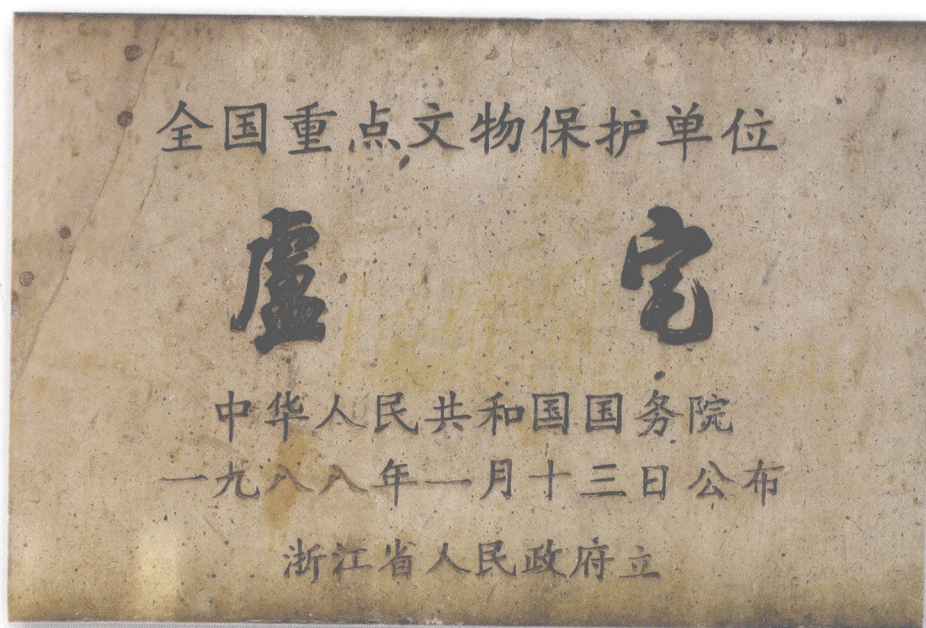 全国重点文物保护单位
盧宅
中华人民共和国国务院
一九八八年一月十三日公布
浙江省人民政府立